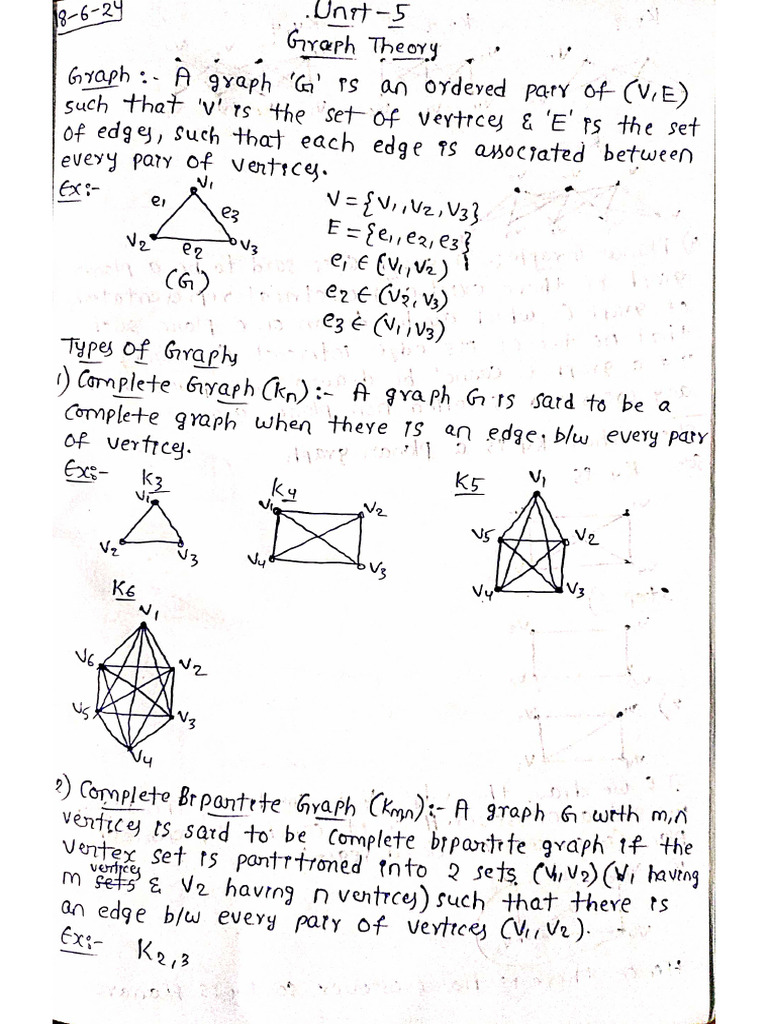 18-6-24
Unit-5
Graph Theory
Graph :- A graph 'G' is an ordered pair of (V,E)
such that 'V' is the set of vertices & 'E' is the set
of edges, such that each edge is associated between
every pair of vertices.
Ex:-
V1
e1
e3
V2
e2
V3
(G)
V = {V1, V2, V3}
E = {e1, e2, e3}
e1 ∈ (V1, V2)
e2 ∈ (V2, V3)
e3 ∈ (V1, V3)
Types Of Graphs
1) Complete Graph (Kn) :- A graph G is said to be a
complete graph when there is an edge b/w every pair
of vertices.
Ex:-
K3
V1
V2
V3
K4
V1
V2
V4
V3
K5
V1
V5
V2
V4
V3
K6
V1
V6
V2
V5
V3
V4
2) Complete Bipartite Graph (Km,n) :- A graph G with m,n
vertices is said to be complete bipartite graph if the
vertex set is partitioned into 2 sets (V1,V2) (V1 having
m sets vertices & V2 having n vertices) such that there is
an edge b/w every pair of vertices (V1, V2).
Ex:-
K2,3